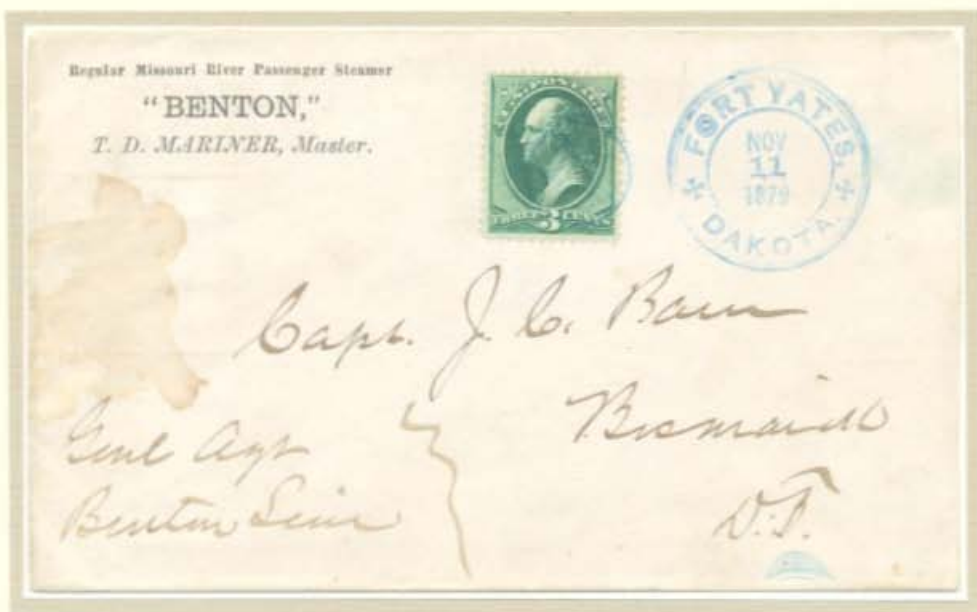 Regular Missouri River Passenger Steamer
"BENTON,"
T. D. MARINER, Master.
U.S. POSTAGE
THREE 3 CENTS
FORT YATES,
NOV
11
1879
DAKOTA
Capt. J. C. Barr
Bismarck
D.T.
Genl Agt
Benton Line